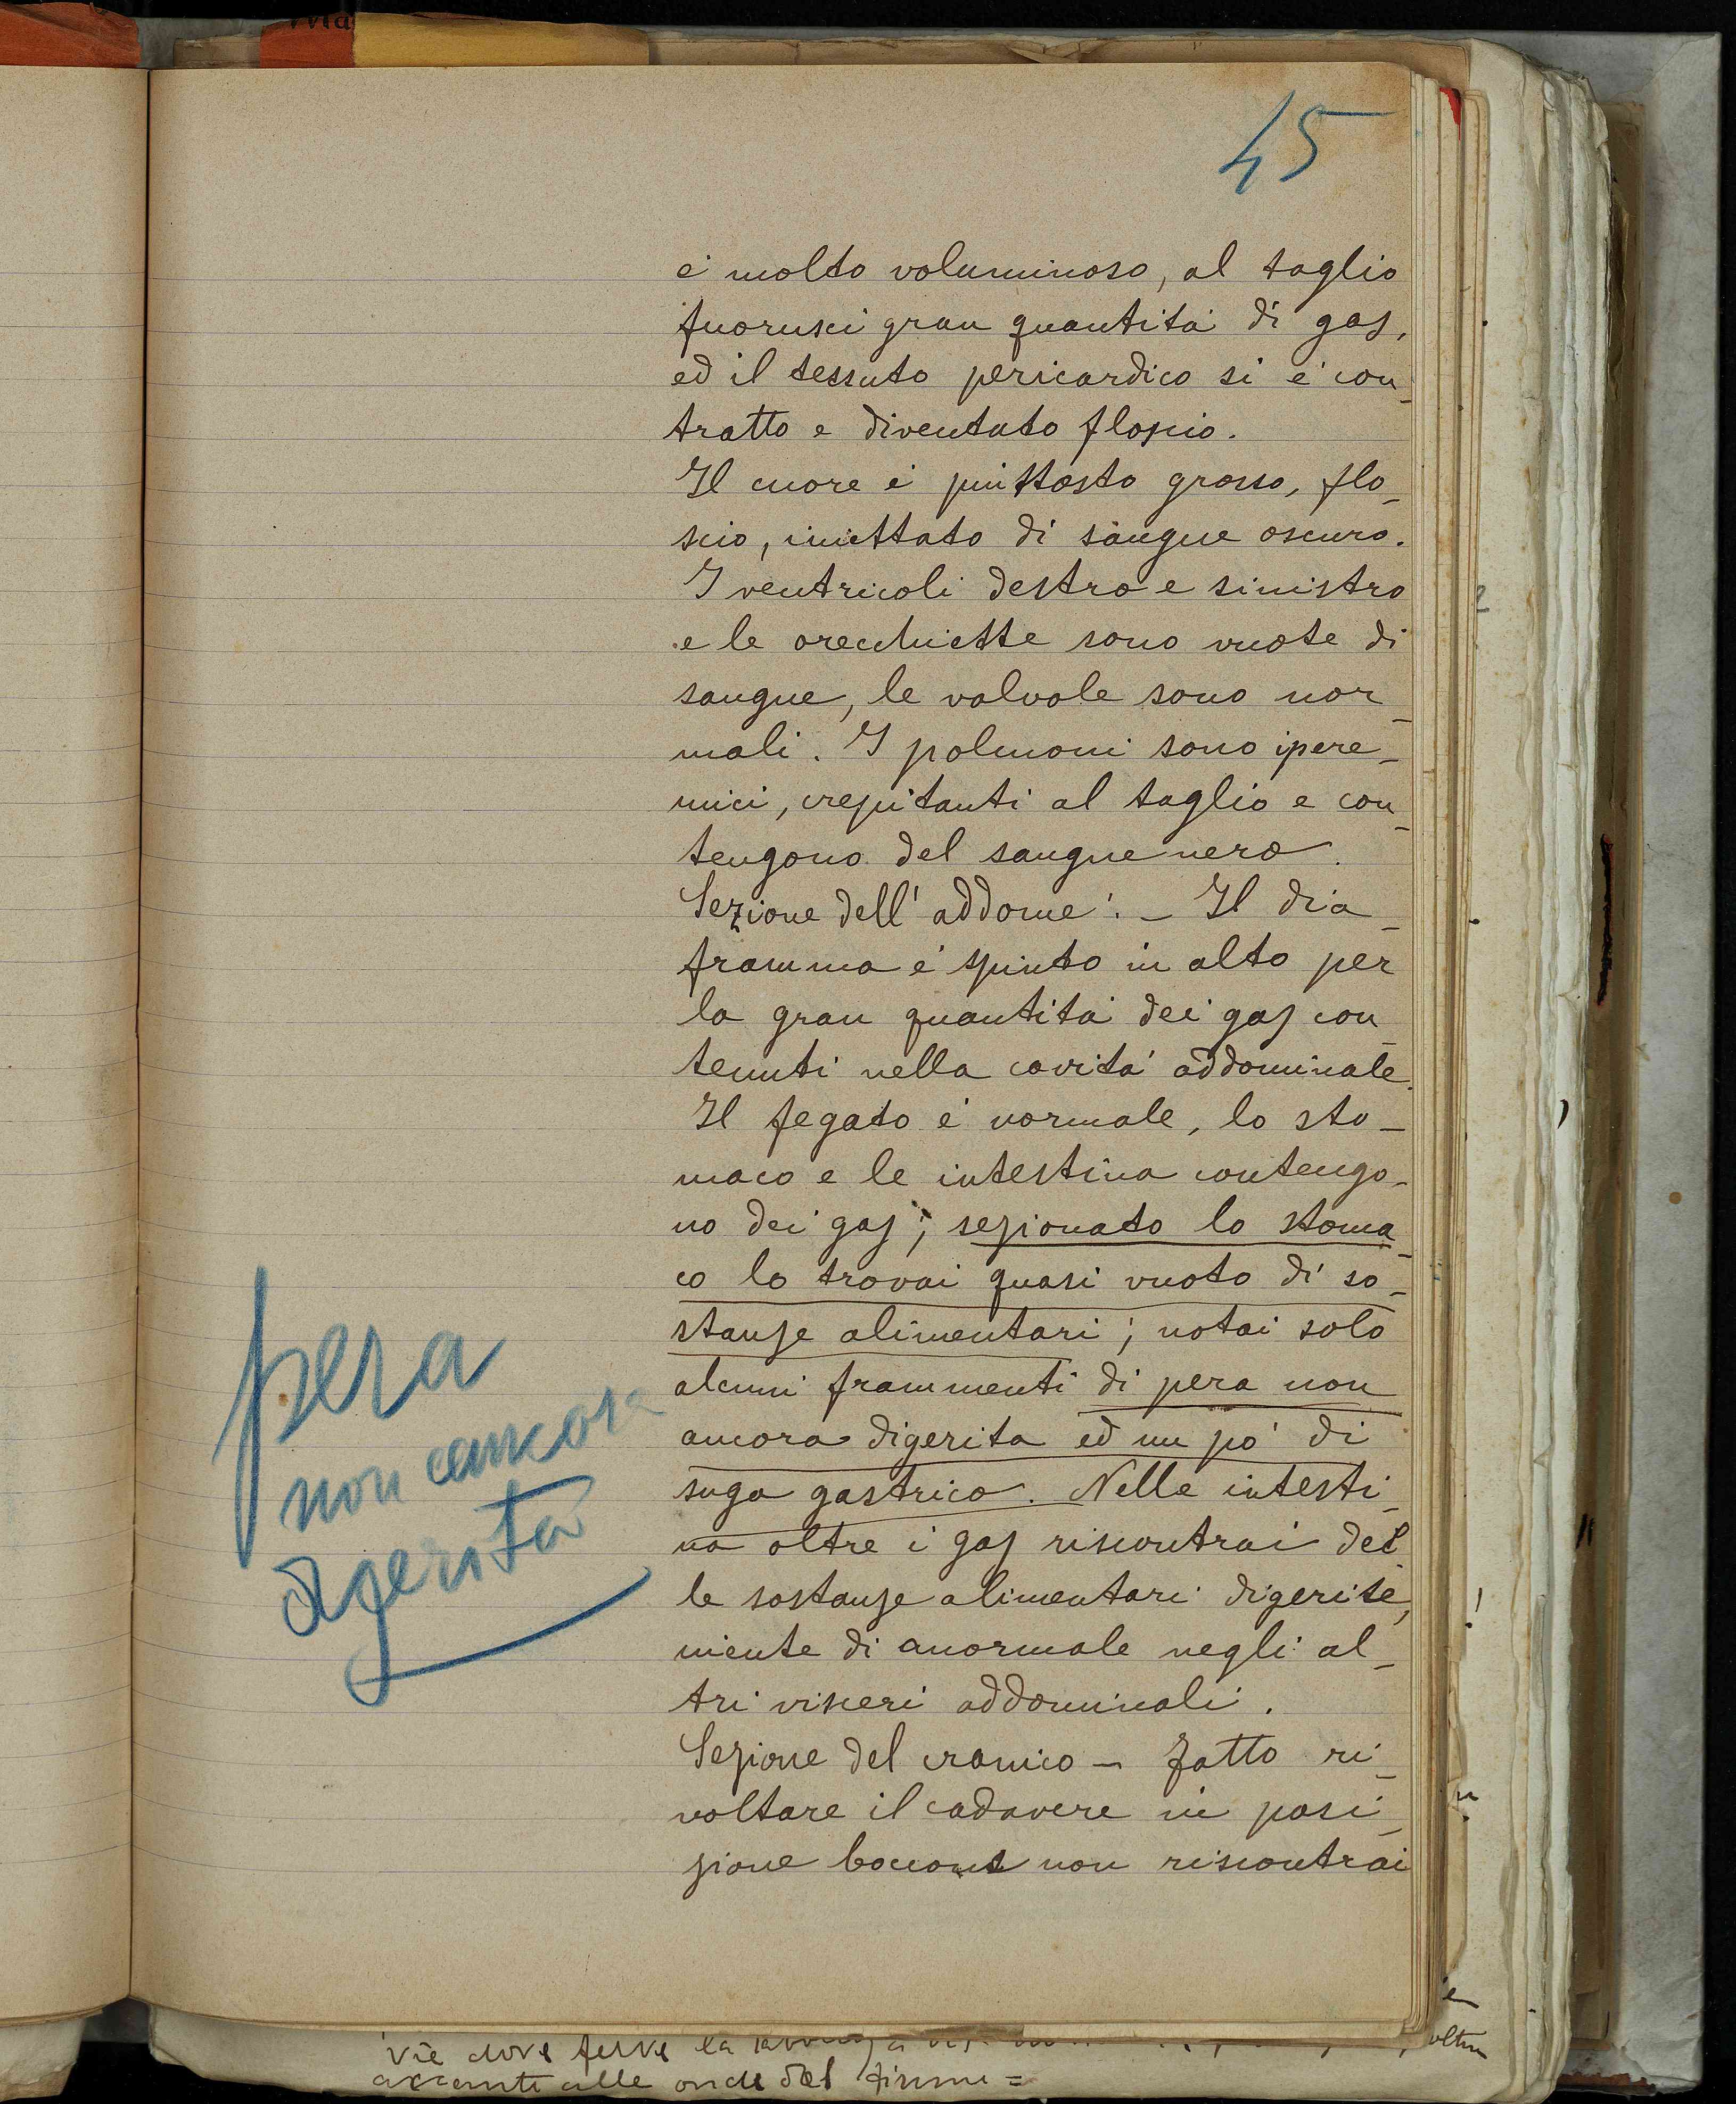 45
è molto voluminoso, al taglio
fuoruscì gran quantità di gas,
ed il tessuto pericardico si è con_
tratto e diventato floscio.
Il cuore è piuttosto grosso, flo_
scio, iniettato di sangue oscuro.
I ventricoli destro e sinistro
e le orecchiette sono vuote di
sangue, le valvole sono nor_
mali. I polmoni sono ipere_
mici, crepitanti al taglio e con_
tengono del sangue nero.
Sezione dell'addome. _ Il dia_
framma è spinto in alto per
la gran quantità dei gas con_
tenuti nella cavità addominale.
Il fegato è normale, lo sto_
maco e le intestina contengo_
no dei gas; sezionato lo stoma_
co lo trovai quasi vuoto di so_
stanze alimentari; notai solo
alcuni frammenti di pera non
ancora digerita ed un pò di
sugo gastrico. Nelle intesti_
na oltre i gas riscontrai del_
le sostanze alimentari digerite,
niente di anormale negli al_
tri visceri addominali.
Sezione del cranico _ Fatto ri_
voltare il cadavere in posi_
zione bocconi non riscontrai
pera
non ancora
digerita
vie dove ferve la
alle onde del fiume =